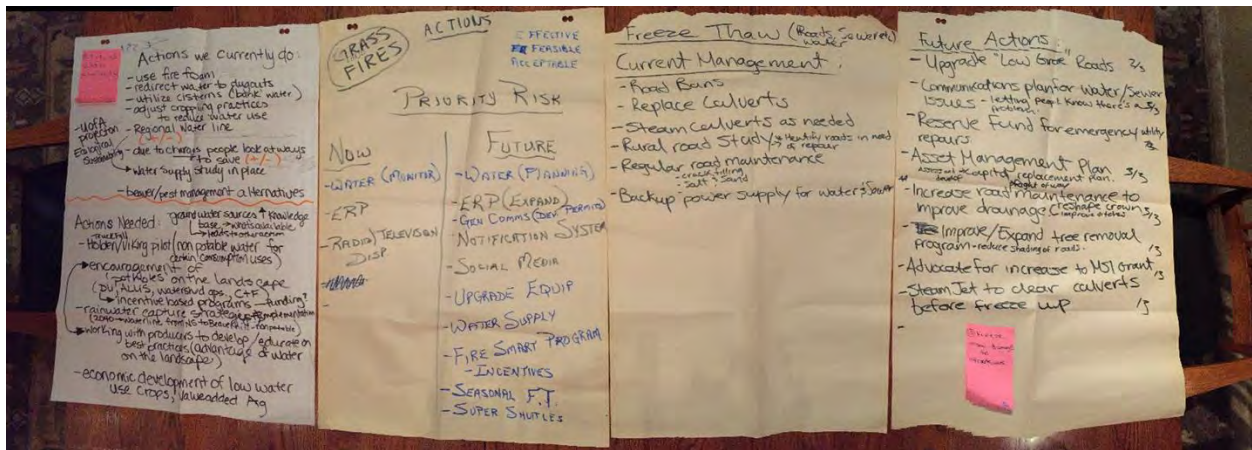 Actions we currently do:
- use fire foam
- redirect water to dugouts
- utilize cisterns ("bank" water)
- adjust cropping practices
to reduce water use
- Regional water line
(+/-)
- UofA
projection
- due to changes people look at ways
to save (+/-)
water supply study in place
- beaver/pest management alternatives
Actions Needed:
groundwater sources ↑ knowledge
base → what's available
- Holden/Viking pilot (non potable water for
certain consumption uses)
encouragement of
"potholes" on the landscape
(DU, ALUS, watershed ops, C+F)
incentive based programs — funding?
- rainwater capture strategies
working with producers to develop/educate on
best practices (advantage of water
on the landscape)
- economic development of low water
use crops, value added Ag
GRASS
FIRES
ACTIONS
EFFECTIVE
FEASIBLE
ACCEPTABLE
PRIORITY RISK
NOW
- WATER (MONITOR)
- ERP
- RADIO/TELEVISION
DISP.
-
FUTURE
- WATER (PLANNING)
- ERP (EXPAND)
- GEN COMMS (DEV. PERMITS)
- NOTIFICATION SYSTEM
- SOCIAL MEDIA
- UPGRADE EQUIP
- WATER SUPPLY
- FIRE SMART PROGRAM
- INCENTIVES
- SEASONAL F.T.
- SUPER SHUTTLES
Freeze Thaw (Roads, Sewer &
water
Current Management:
- Road Bans
- Replace Culverts
- Steam Culverts as needed
- Rural road Study → Identify roads in need
of repair
- Regular road maintenance
- crack filling
- Salt/Sand
- Backup power supply for water & Sewer
Future Actions:
- Upgrade "Low Grade" Roads 2/3
- Communications plan for water/sewer
issues - letting people know there's a 3/3
problem.
- Reserve Fund for emergency utility
repairs
- Asset Management Plan 3/3
replacement plan.
- Increase road maintenance to
improve drainage (reshape crown 3/3
- Improve/Expand tree removal
program - reduce shading of roads. 1/3
- Advocate for increase to MSI Grant 1/3
- Steam Jet to clear culverts
before freeze up 1/3
-